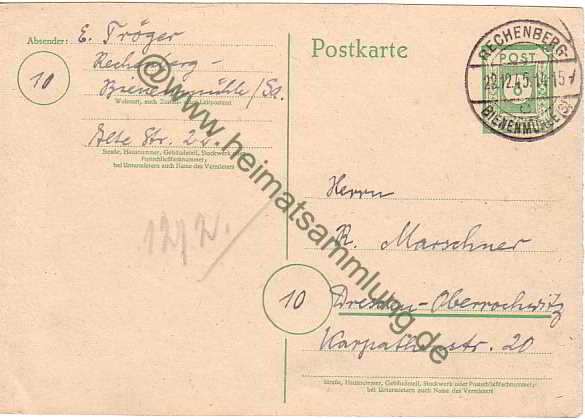 Absender: E. Tröger
Rechenberg-
10
Bienenmühle/Sa.
Wohnort, auch Zustell- oder Leitpostamt
Alte Str. 24
Straße, Hausnummer, Gebäudeteil, Stockwerk oder
Postschließfachnummer;
bei Untermietern auch Name des Vermieters
12/2.
Postkarte
RECHENBERG-
POST
BIENENMÜHLE
Herrn
R. Marschner
10
Dresden-Oberrochwitz
Karpathenstr. 20
Straße, Hausnummer, Gebäudeteil, Stockwerk oder Postschließfachnummer;
bei Untermietern auch Name des Vermieters
@www.heimatsammlung.de